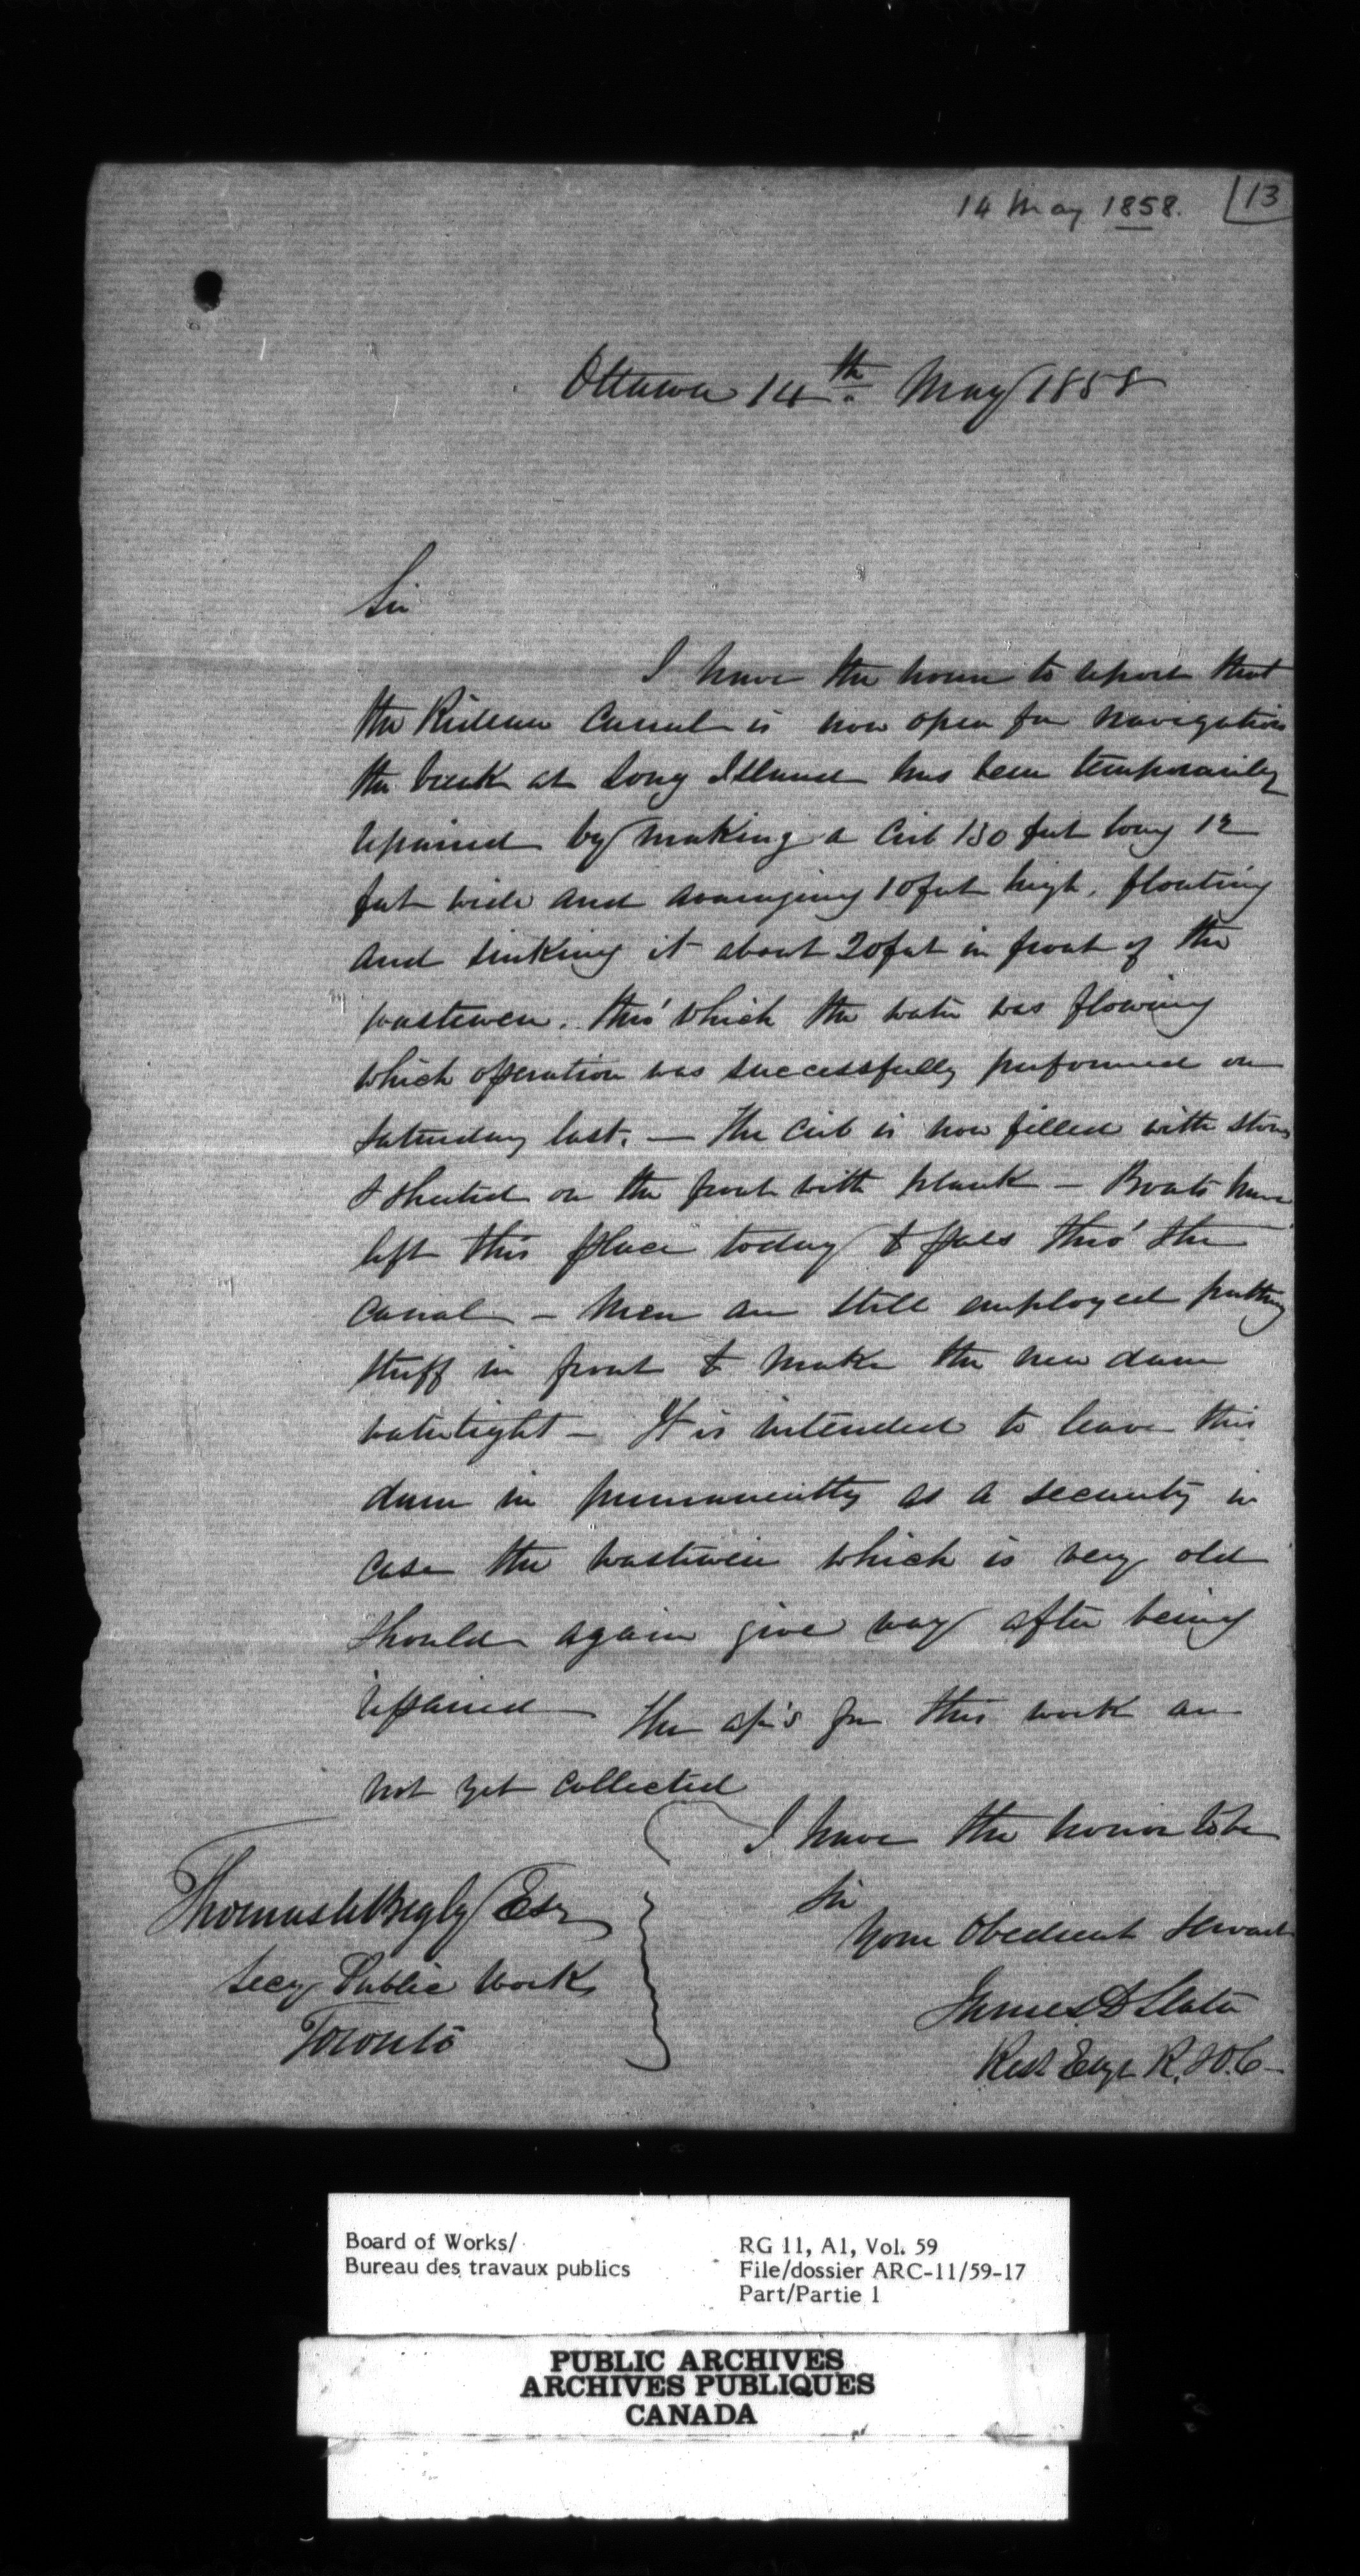 14 May 1858. 13
Ottawa 14th May 1858
Sir
I have the honor to report that
the Rideau Canal is now open for navigation
the break at Long Island has been temporarily
repaired by making a crib 130 feet long 12
feet wide and averaging 10 feet high, floating
and sinking it about 20 feet in front of the
wasteweir. thro' which the water was flowing
which operation was successfully performed on
Saturday last. — The crib is now filled with stone
& sheeted on the front with plank — Boats have
left this place today to pass thro' the
Canal — Men are still employed putting
stuff in front to make the new dam
watertight — It is intended to leave this
dam in permanently as a security in
case the wasteweir which is very old
should again give way after being
repaired The for this work are
not yet collected
I have the honor to be
Sir
Your Obedient Servant
James D Slater
Resdt Engr R. & O. C —
Thomas A Begly Esqr
Secy Public Works
Toronto
Board of Works/
Bureau des travaux publics
RG 11, A1, Vol. 59
File/dossier ARC-11/59-17
Part/Partie 1
PUBLIC ARCHIVES
ARCHIVES PUBLIQUES
CANADA